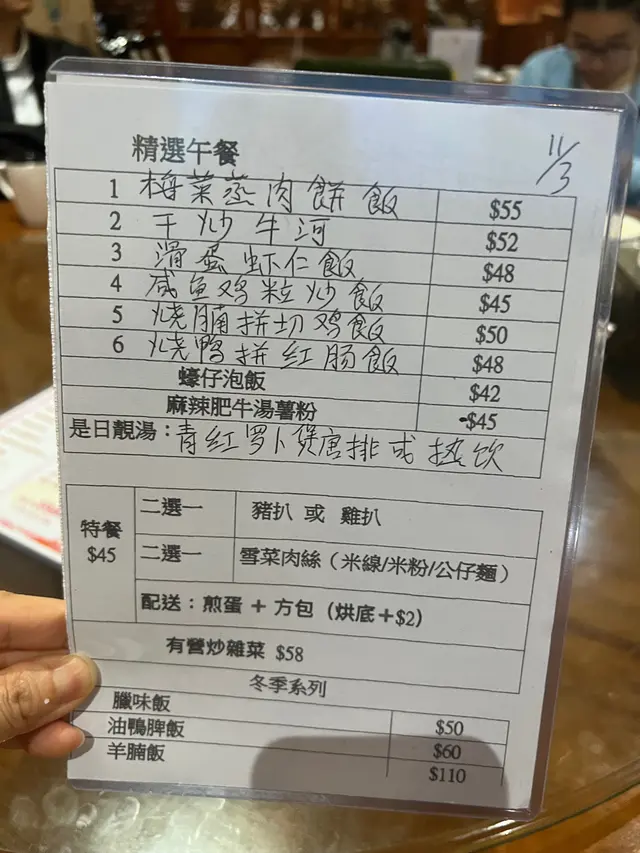 11/3
精選午餐
1 梅菜蒸肉餅飯 $55
2 干炒牛河 $52
3 滑蛋虾仁飯 $48
4 咸鱼鸡粒炒飯 $45
5 烧腩拼切鸡飯 $50
6 烧鸭拼红肠飯 $48
蠔仔泡飯 $42
麻辣肥牛湯薯粉 $45
是日靚湯：青红罗卜煲唐排或热饮
特餐 $45
二選一 豬扒 或 雞扒
二選一 雪菜肉絲（米線/米粉/公仔麵）
配送：煎蛋 + 方包（烘底+$2）
有營炒雜菜 $58
冬季系列
臘味飯 $50
油鴨脾飯 $60
羊腩飯 $110